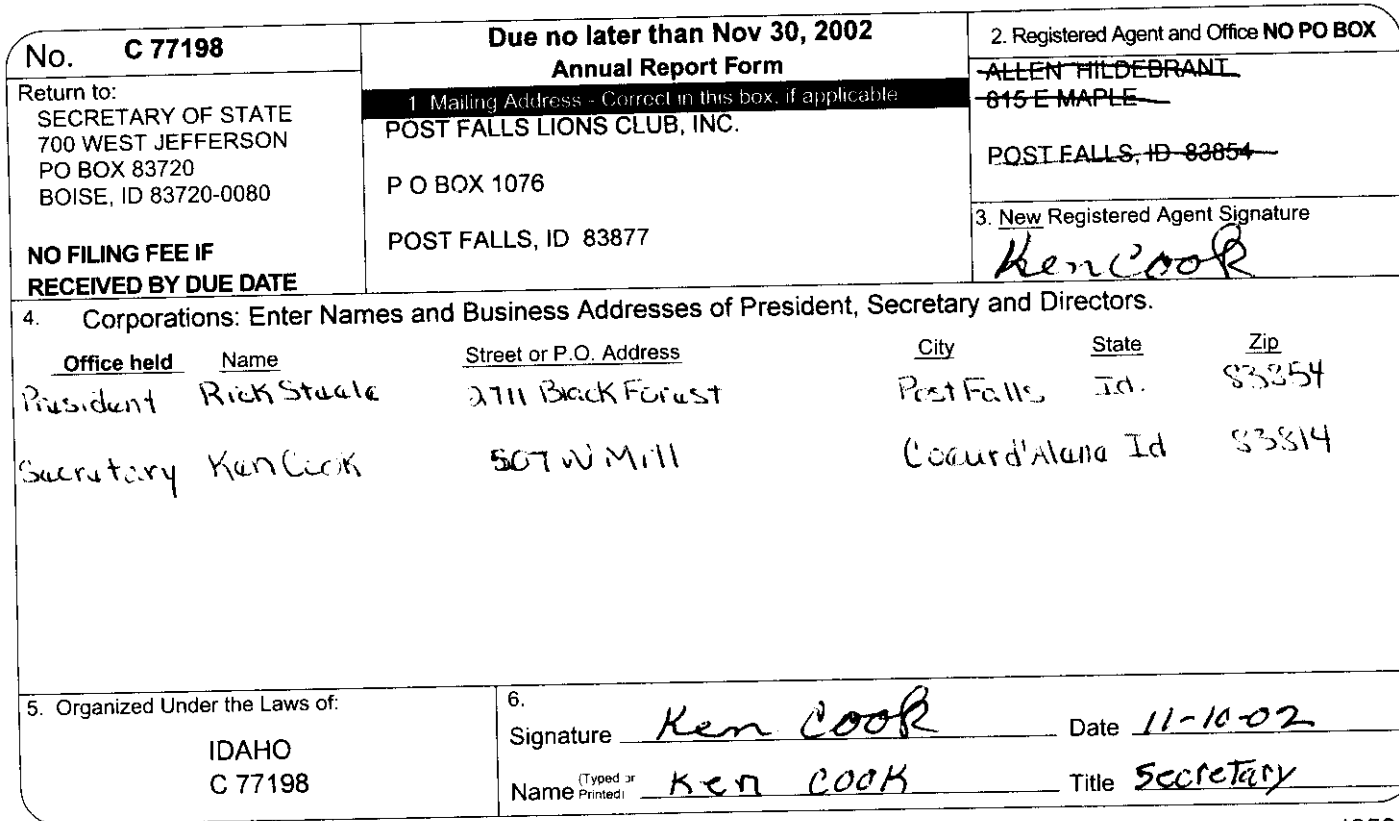 No. C 77198
Return to:
SECRETARY OF STATE
700 WEST JEFFERSON
PO BOX 83720
BOISE, ID 83720-0080
NO FILING FEE IF
RECEIVED BY DUE DATE
Due no later than Nov 30, 2002
Annual Report Form
1 Mailing Address - Correct in this box, if applicable
POST FALLS LIONS CLUB, INC.
P O BOX 1076
POST FALLS, ID 83877
2. Registered Agent and Office NO PO BOX
ALLEN HILDEBRANT
815 E MAPLE
POST FALLS, ID 83854
3. New Registered Agent Signature
Ken Cook
4. Corporations: Enter Names and Business Addresses of President, Secretary and Directors.
Office held Name Street or P.O. Address City State Zip
President Rick Steele 2711 Black Forest Post Falls Id. 83854
Secretary Ken Cook 507 W Mill Coeur d'Alene Id 83814
5. Organized Under the Laws of:
IDAHO
C 77198
6.
Signature Ken Cook Date 11-10-02
Name (Typed or Printed) Ken Cook Title Secretary